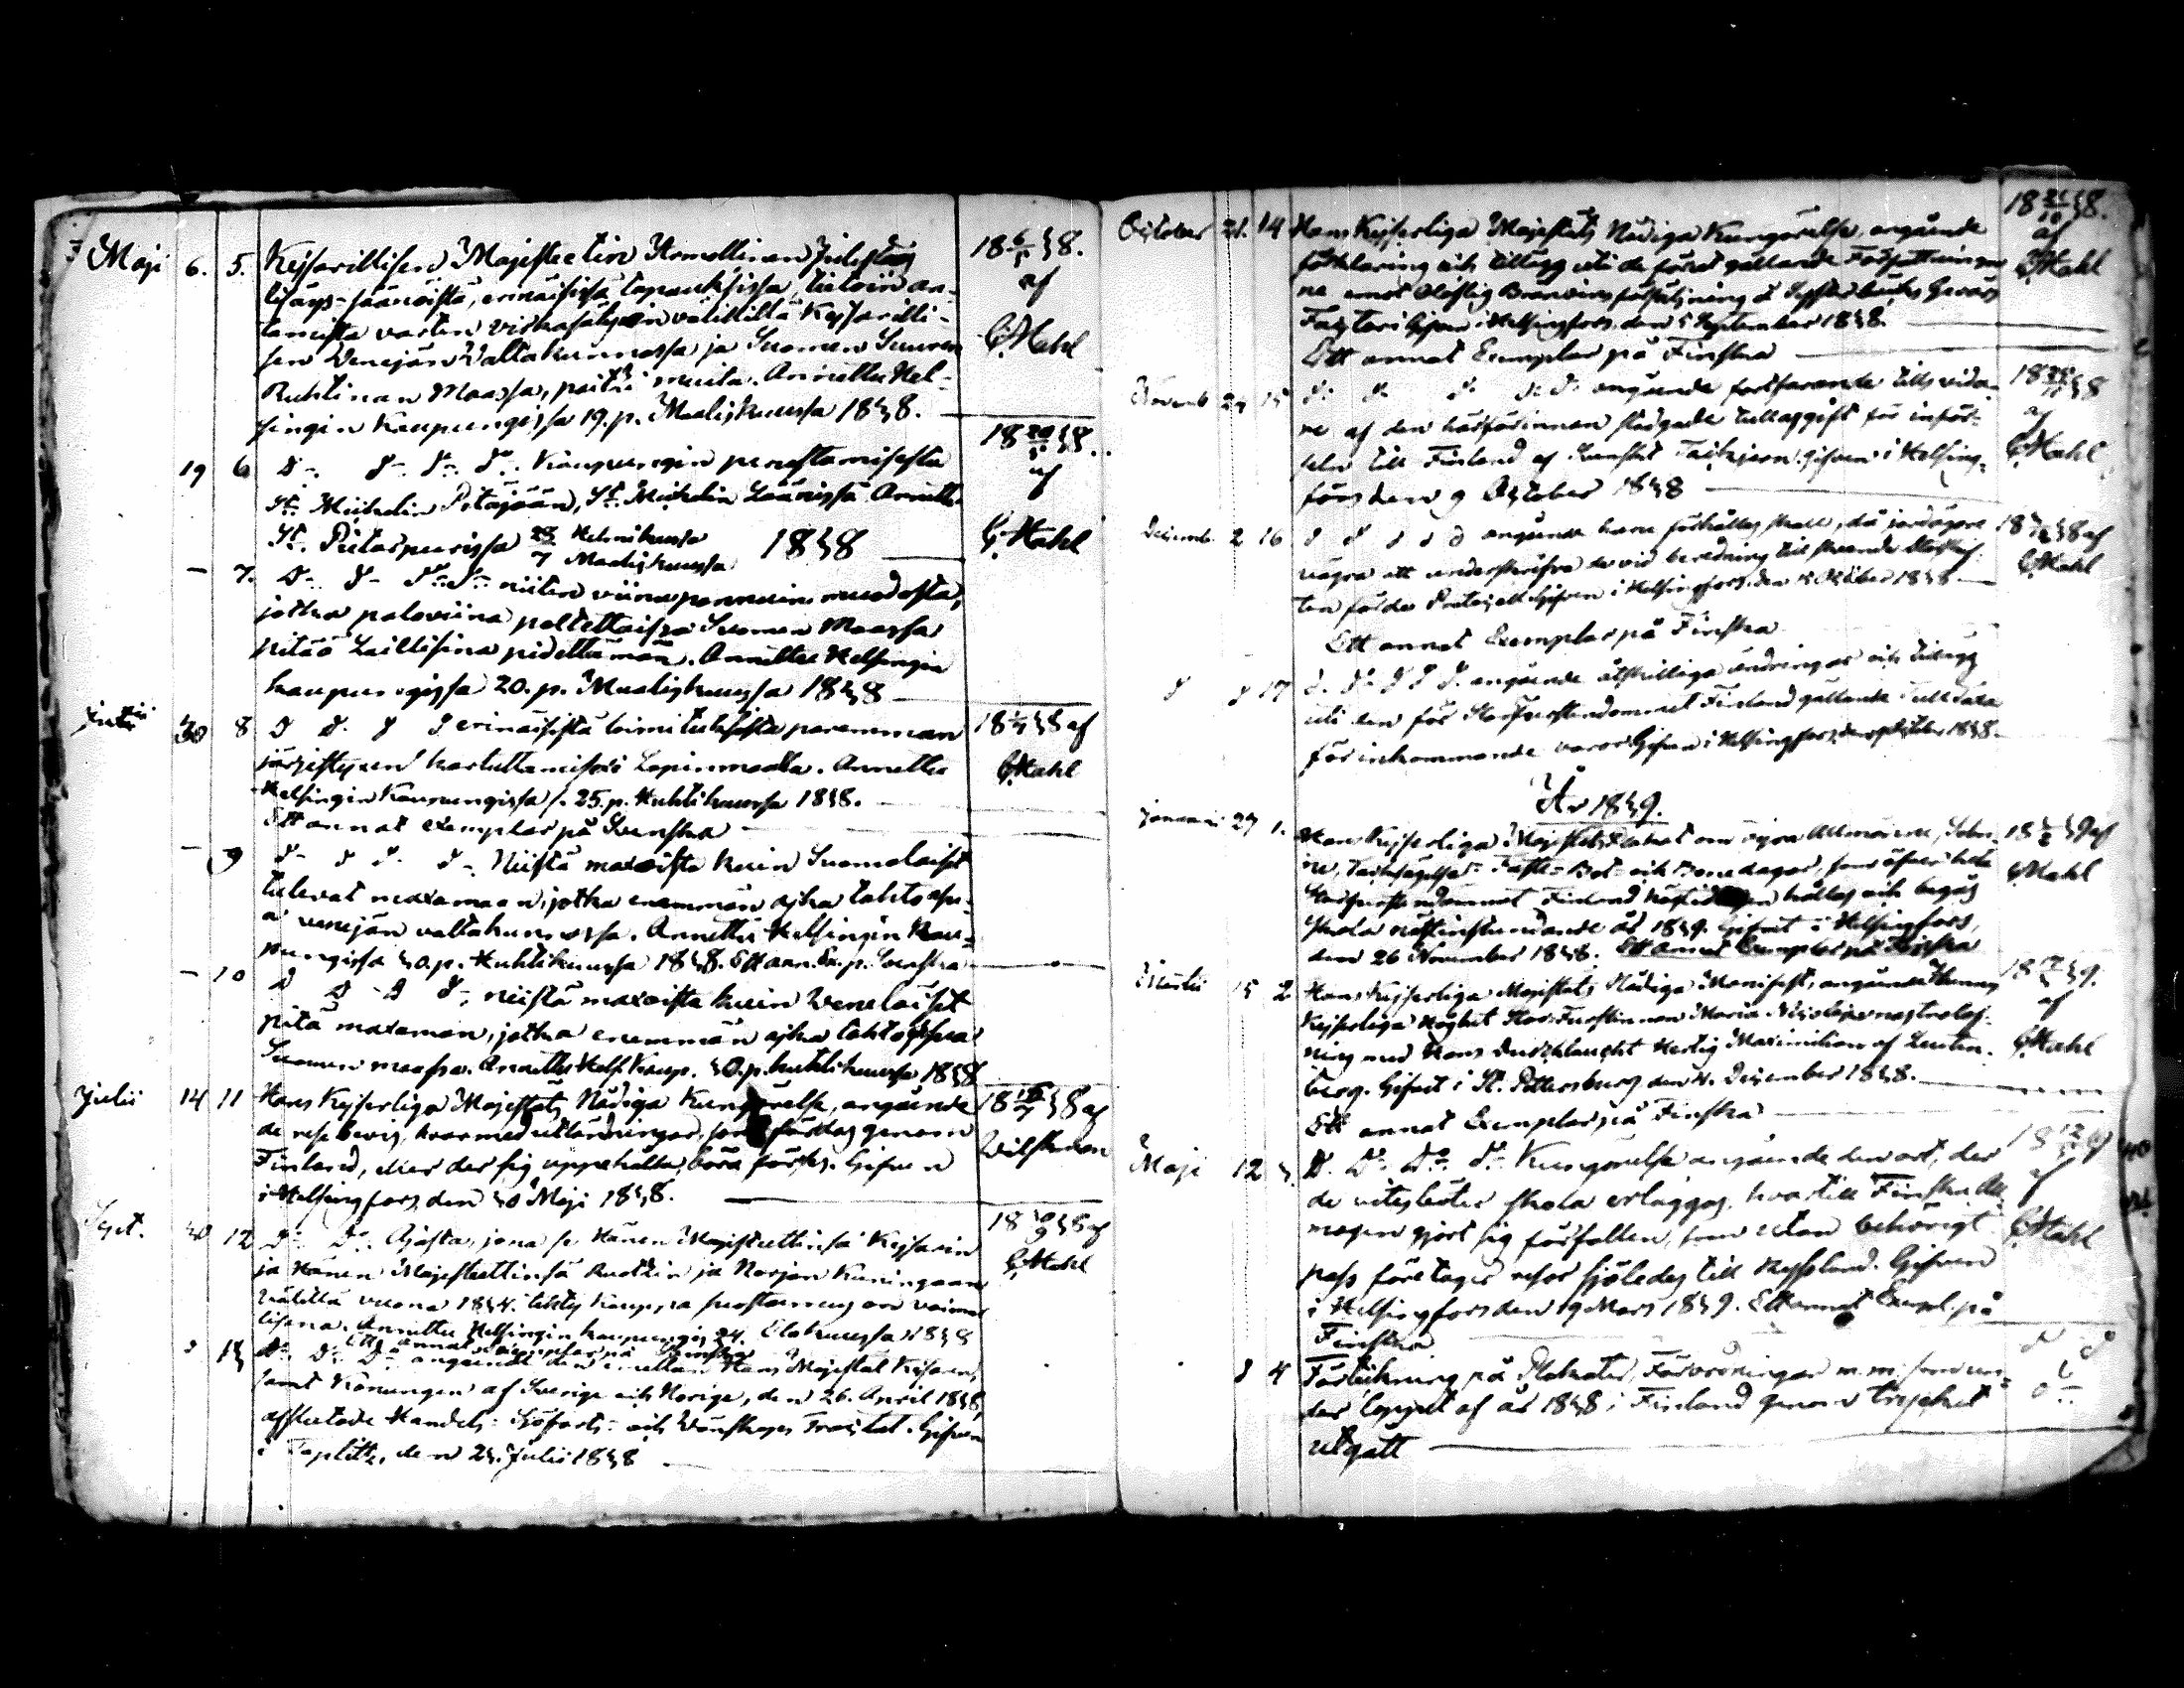 Maji 6. 5. Kejsarillisen Majestetin Armollinen Julistus
lisäys-säännöistä, erinäisissä tapauksissa, tietoin an-
tamista varten virkasäätyin välillä Kejsarilli-
sen Wenejän Waltakunnassa ja Suomen Suuren
Ruhtinan Maassa, paitsi muita. Annettu Hel-
singin Kaupungissa 19. p. Maaliskuussa 1838.
18 6/5 38.
af
G. Stahl
19 6 D:o D:o D:o D:o Kaupungin perustamisesta
St. Mickelin Pitäjään, St. Mickelin Läänissä. Annettu
St. Pietarpurissa 23 Helmikuussa
7 Maaliskuussa 1838
18 20/5 38.
af
G. Stahl
— 7. D:o D:o D:o D:o niiten viinapannuin muodosta,
jotka paloviina poltettaissa Suomen Maassa
pitää Laillisina pidettämän. Annettu Helsingin
kaupungissa 20. p. Maaliskuussa 1838
Junii 30 8 D D D D erinäisistä toimituksista paremman
järjestyksen Lapinmaalla. Annettu
Helsingin Kaupungissa 25. p. Huhtikuussa 1838.
Ett annat exemplar på Svenska
18 1/7 38 af
G. Stahl
— 9 D D D D Niistä maxoista kuin Suomalaiset
tulevat maxamaan, jotka enemmän ajka tahto asu-
a venejän valtakunnassa. Annettu Helsingin Kau-
pungissa 30. p. Huhtikuussa 1838. Ett ann. Ex. p. Svenska
— 10 D D D D, niistä maxoista kuin Wenäläiset
pitä maxaman, jotka enemmän ajka tahto
Suomen maassa. Annettu Hels. Kaup. 30. p. huhtikuussa 1838
Julii 14 11 Hans Kejserliga Majestäts Nådiga Kungörelse, angående
de rese bevis, hvarmed utländningar, som färdas genom
Finland, eller der sig uppehålla, böra förses. Gifven
i Helsingfors, den 30 Maji 1838.
18 15/7 38 af
Wilskman
Sept. 30 12 D:o D:o Ajasta, jona se Hänen Majestettinsä Kejsarin
ja Hänen Majestettinsä Ruotzin ja Norjan Kuningaan
välillä vuona 1834. tehty Kauppa suostumus on voimal
lisena. Annettu Helsingin kaupungis 24. Elokuussa 1838
Ett annat exemplar på Svenska
18 30/9 38 af
G. Stahl
13 D:o D:o D:o angående den emellan Hans Majestät Kejsaren,
samt Konungen af Sverige och Norige, den 26. April 1838
afslutade Handels- Sjöfarts- och Wänskaps Tractat. Gifven
i Teplitz, den 23. Julii 1838
October 21. 14 Hans Kejserliga Majestäts Nådiga Kungörelse, angående
förklaring och tillägg uti de förut gällande Författningar
na emot olaflig Brännvins försäljning å Systerbäcks Gevärs
Factori. Gifven i Helsingfors, den 5 September 1838.
Ett annat Exemplar på Finska
18 21/10 38.
af
G. Stahl
Novemb 25 15 D: D: D: D: D: angående fortfarande tillsvida-
re af den härförinnan stadgade tullafgift för införs-
seln till Finland af Gifven i Helsing-
fors den 9 October 1838
18 25/11 38
af
G. Stahl
Decemb. 2 16 D D D D D angående huru förhållas skall, då jordägare
vägra att underskrifva
Gifven i Helsingfors, den October 1838
Ett annat Exemplar på Finska
18 2/12 38 af
G. Stahl
D D 17 D. D:o D D D. angående åtskilliga ändringar och tillägg
uti den för Storfurstendömmet Finland gällande Tull Taxa
för inkommande varor. Gifven i Helsingfors, den October 1838.
År 1839.
Januari 27 1. Hans Kejserliga Majestäts Plakat om fyra Allmänna, Solen-
ne, Tacksägelse- Faste- Bot- och Bönedagar, som öfver hela
Storfurstendömmet Finland hållas och begås
skola nästinstundande år 1839. Gifvit i Helsingfors,
den 26 November 1838. Ett annat Exemplar på Finska
39 af
G. Stahl
Martii 15 2 Hans Kejserliga Majestäts Nådiga Manifest, angående Hennes
Kejserliga Höghet Stor-Furstinnan Maria Nicolajevnas trolof-
ning med Hans Durchlaucht Hertig Maximilian af Leuchten-
berg. Gifvit i St. Pettersburg den 4. December 1838.
Ett annat Exemplar på Finska
39.
af
G. Stahl
Maji 12 3. D. D:o D:o D:o Kungörelse angående den ort, der
de vitesböter skola erläggas, hvartill Finska All-
mogen gjort sig förfallen, som utan behörigt
pass företager resor sjöledes till Ryssland. Gifven
i Helsingfors den 19 Mars 1839. Ett annat Exempl. på
Finska
18 12/5 39
af
G. Stahl
D 4 Förtekning på Plakater, Förordningar m. m. som un-
der loppet af år 1838 i Finland genom trycket
utgått